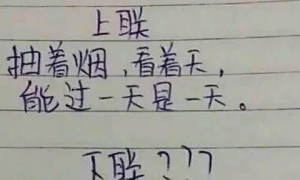 上联
抽着烟，看着天，
能过一天是一天。
下联???